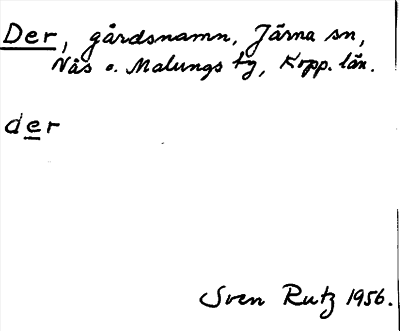 Der, gårdsnamn, Järna sn,
Nås o. Malungs tg, Kopp. län.
der
Sven Rutz 1956.